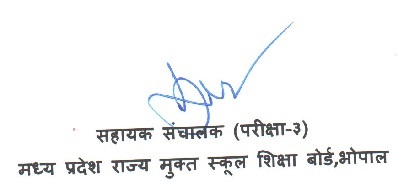 सहायक संचालक (परीक्षा-३)
मध्य प्रदेश राज्य मुक्त स्कूल शिक्षा बोर्ड,भोपाल